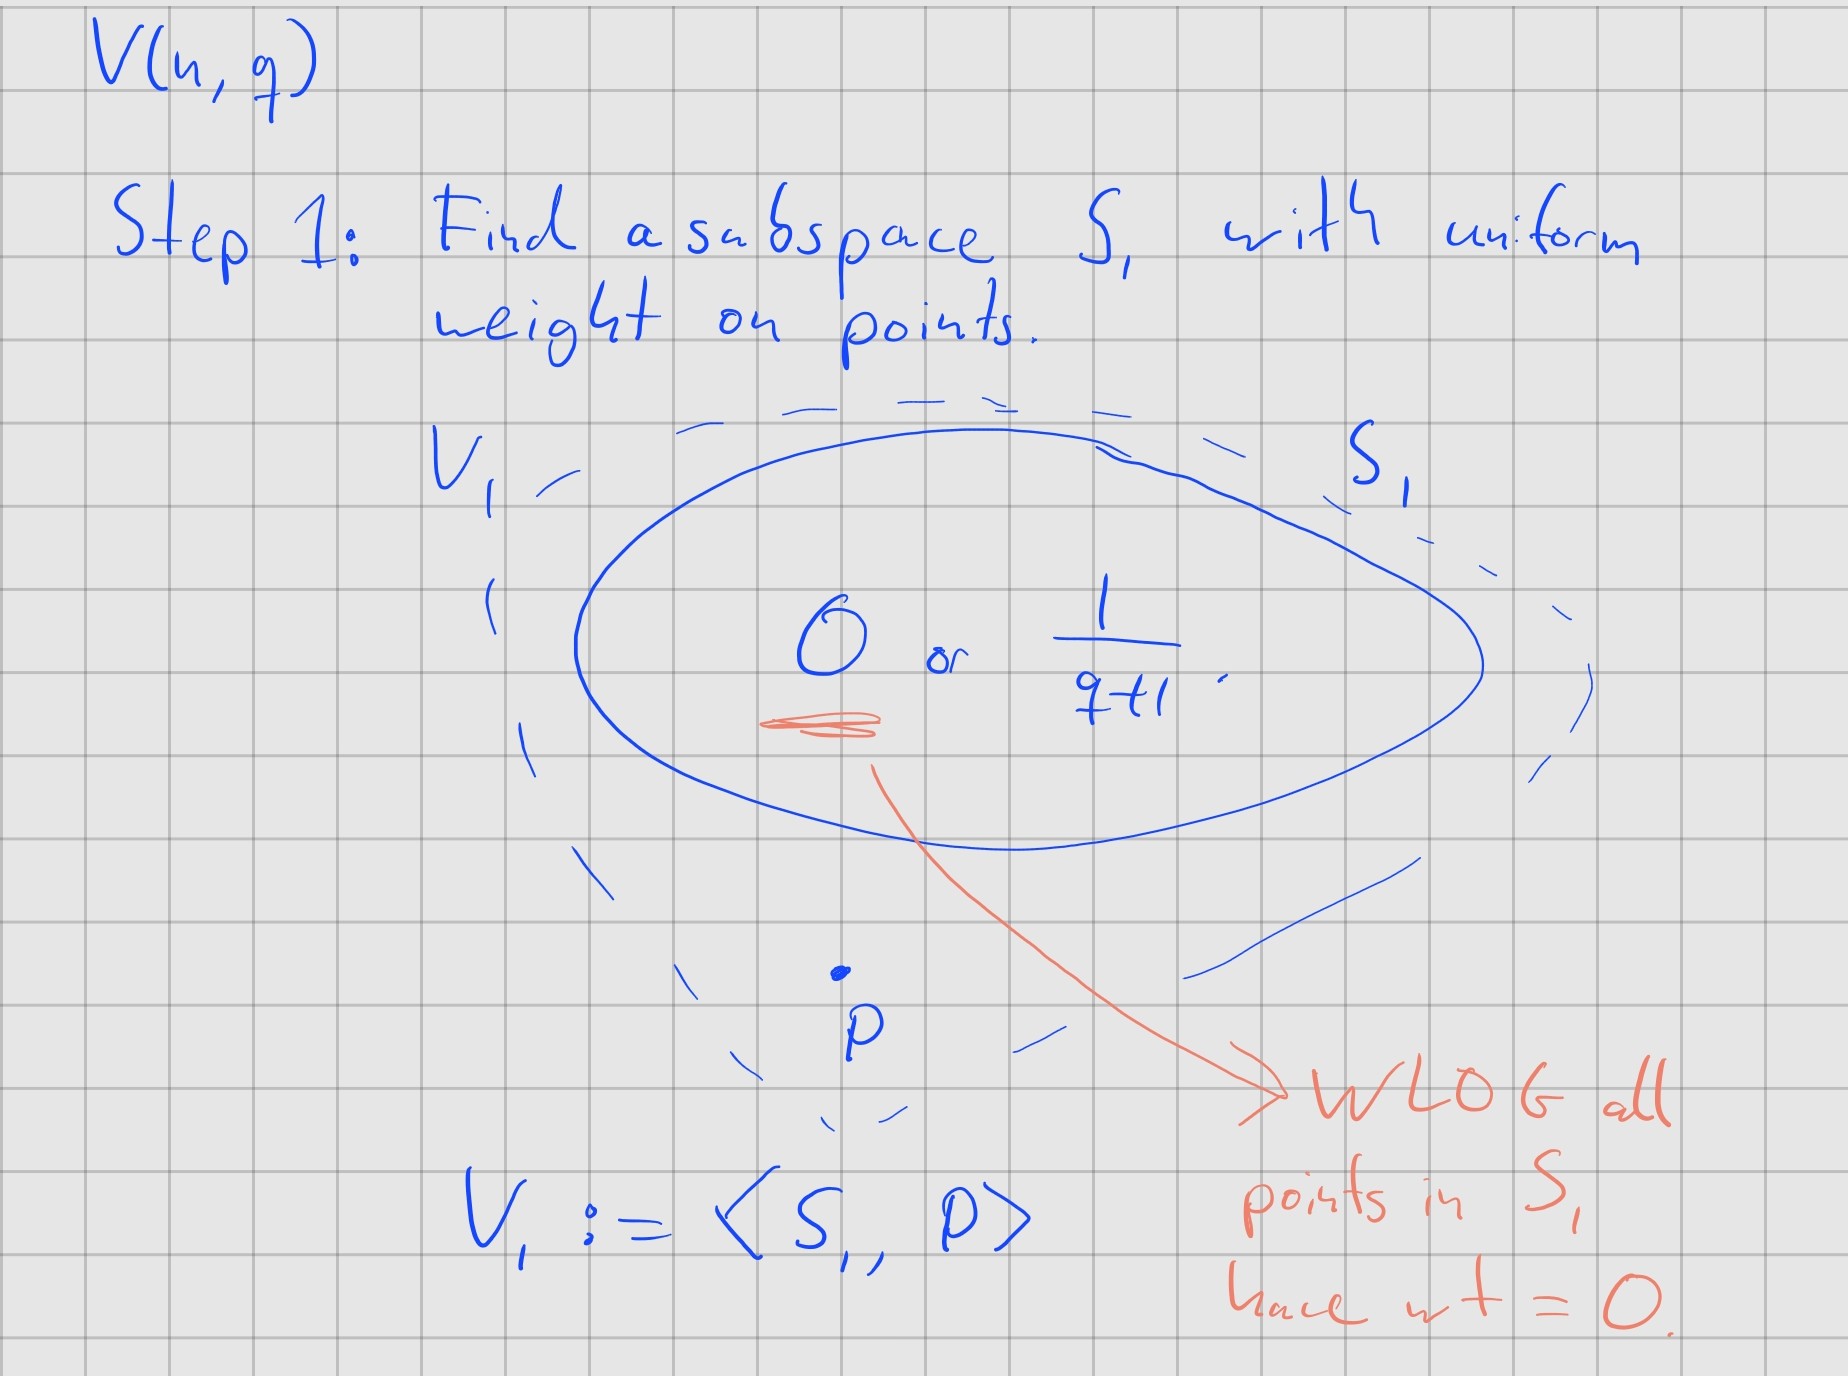 V(n, q)
Step 1: Find a subspace S₁ with uniform
weight on points.
V₁
S₁
0 or 1/(q+1).
p
WLOG all
points in S₁
have wt = 0.
V₁ := <S₁, p>